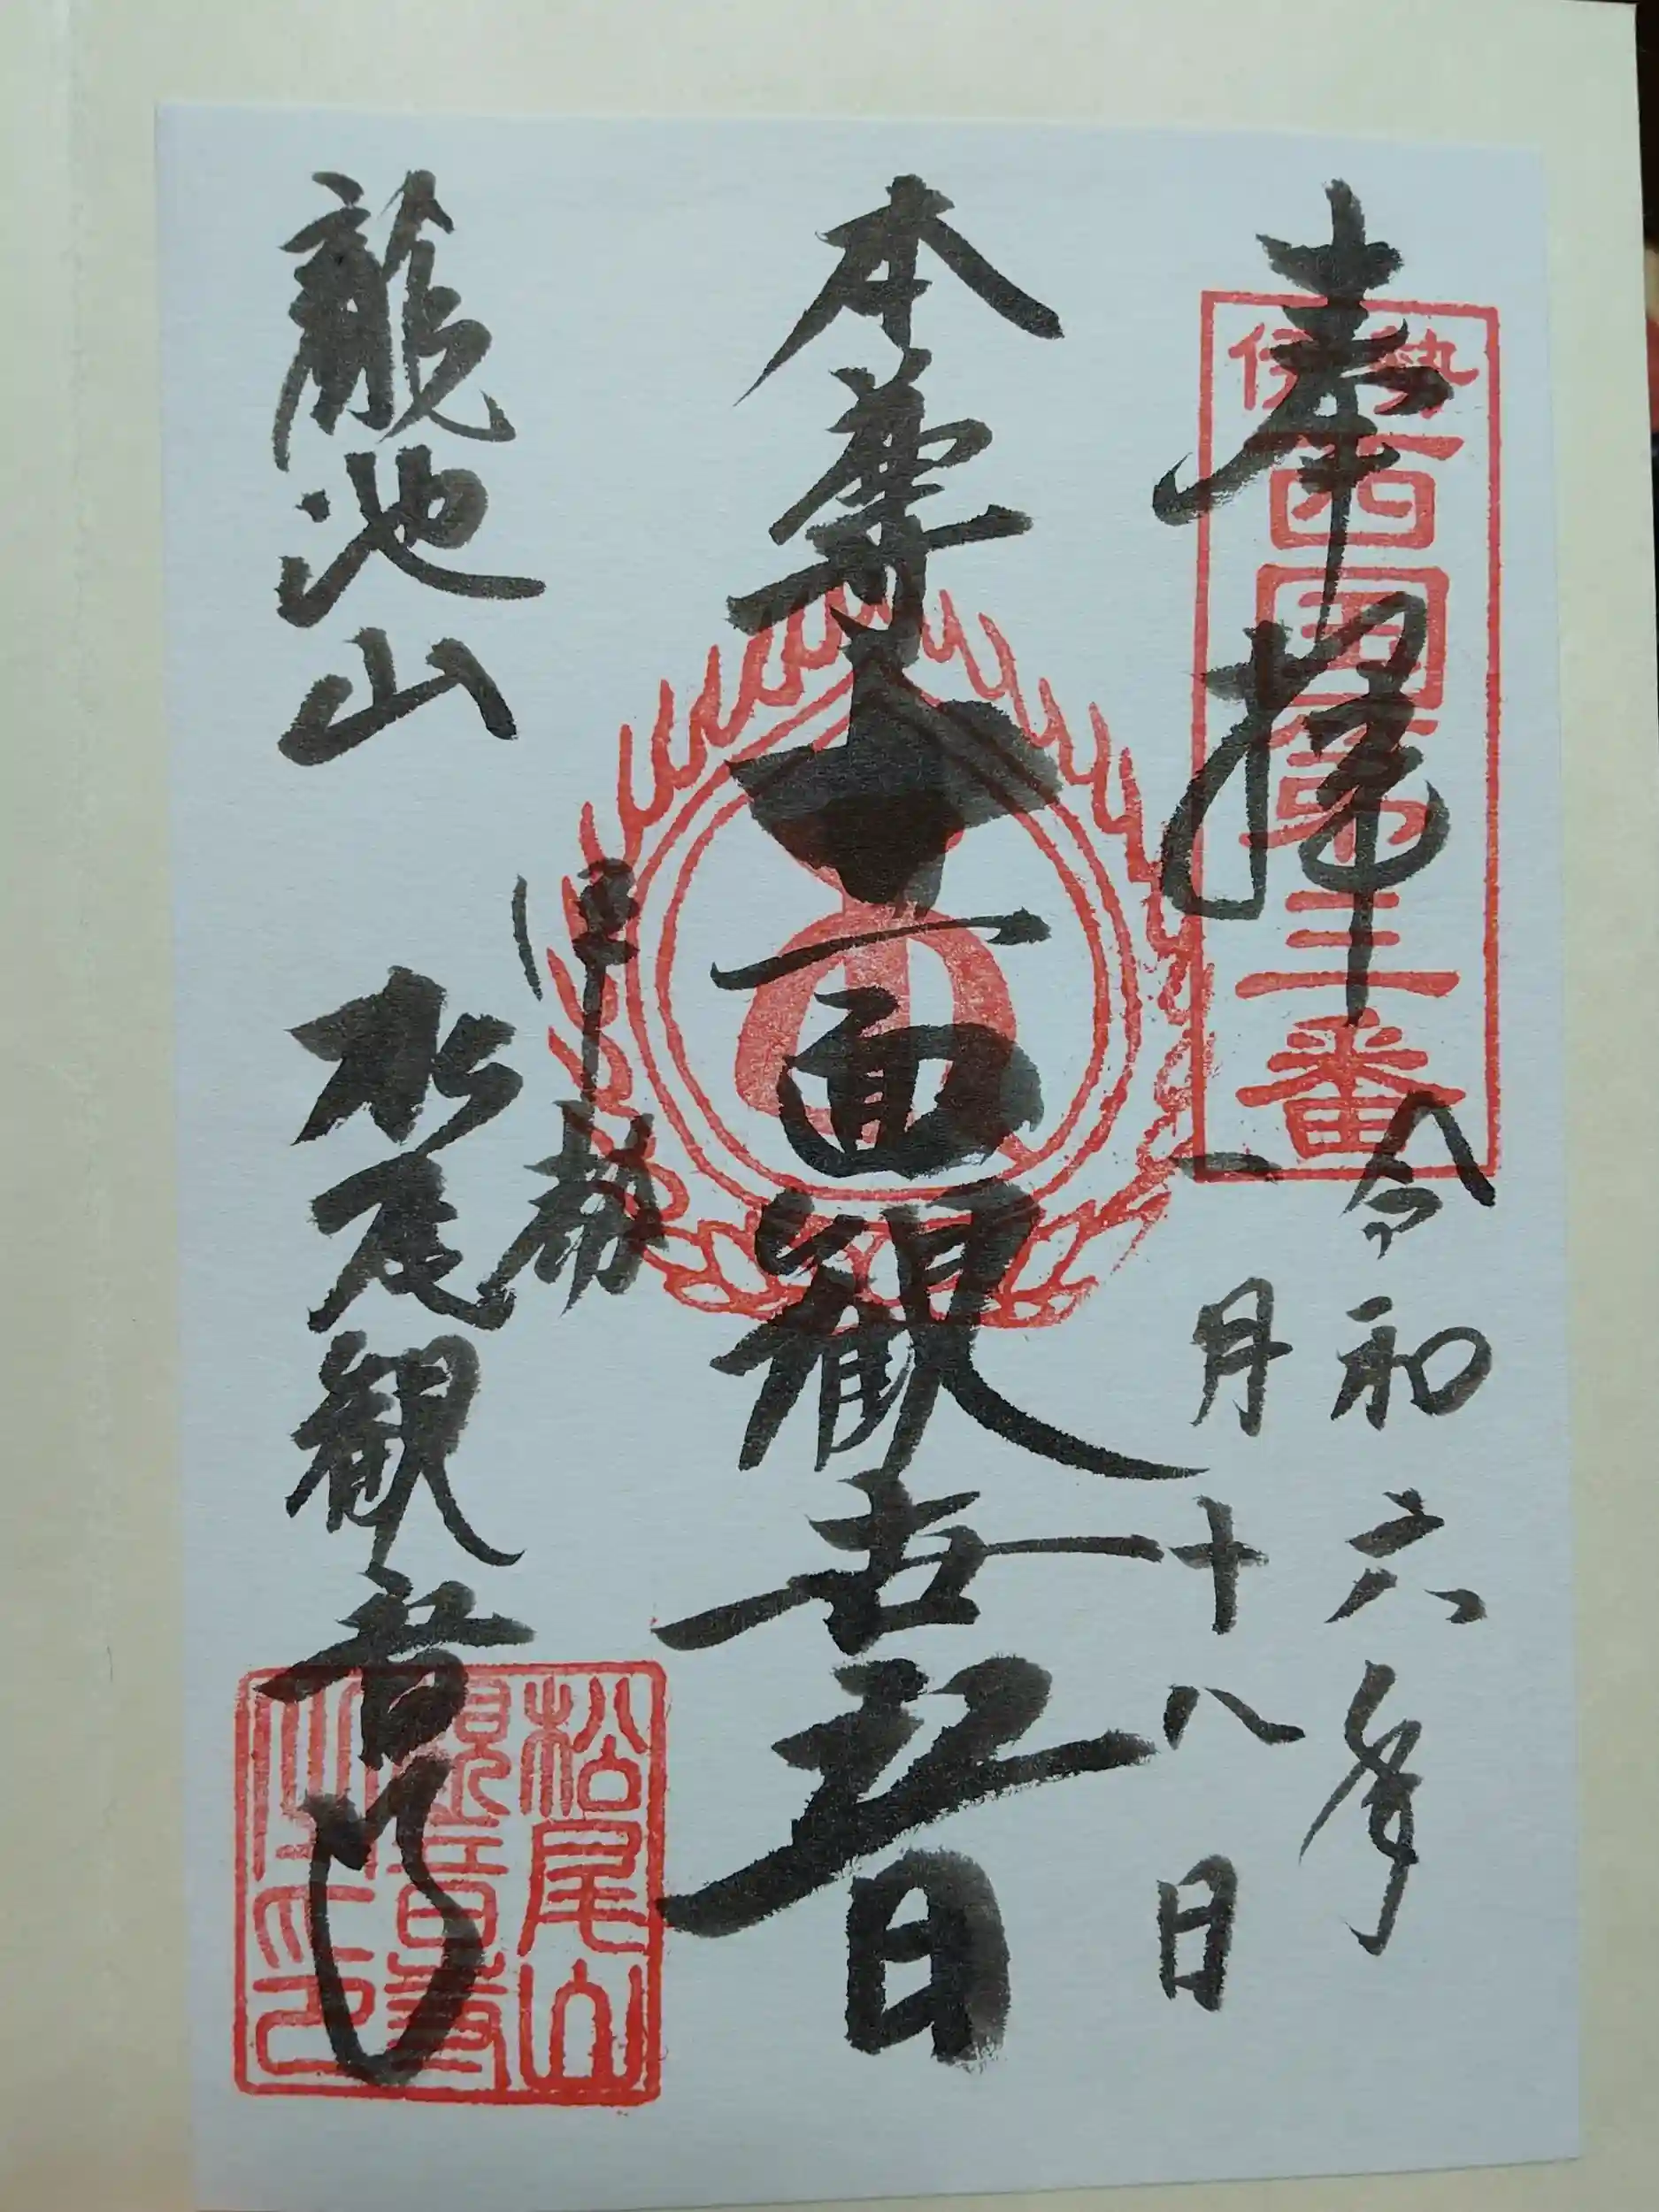 奉拝
伊勢
西国第三番
令和六年
一月十八日
本尊十一面観世音
龍池山
伊勢
松尾観音寺
松尾山
観音寺
之印